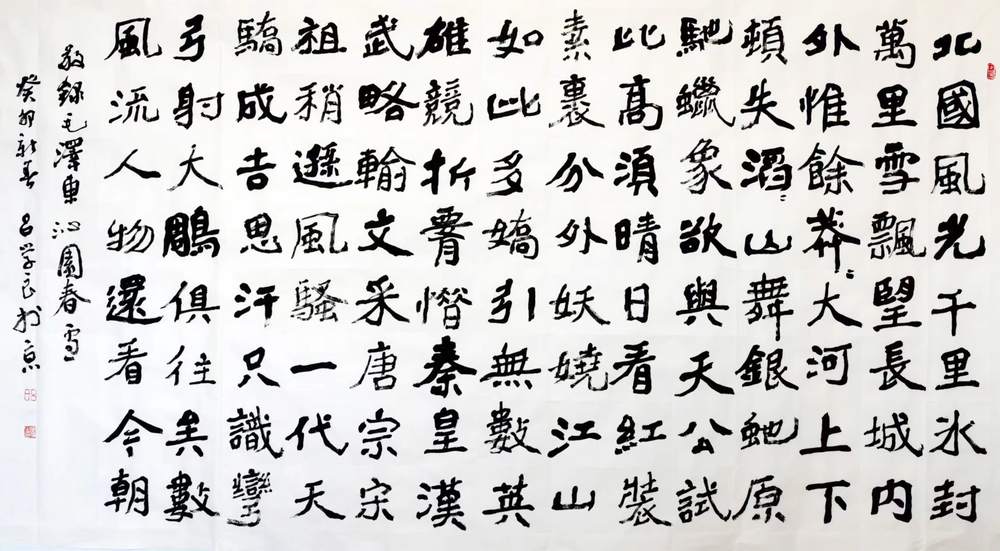 北國風光千里氷封
萬里雪飄望長城内
外惟餘莽々大河上下
頓失滔々山舞銀虵原
馳蠟象欲與天公試
比高須晴日看紅裝
素裹分外妖嬈江山
如此多嬌引無數英
雄競折腰惜秦皇漢
武略輸文采唐宗宋
祖稍遜風騷一代天
驕成吉思汗只識彎
弓射大鵰俱往矣數
風流人物還看今朝
敬錄毛澤東沁園春雪
癸卯新春吕学於京